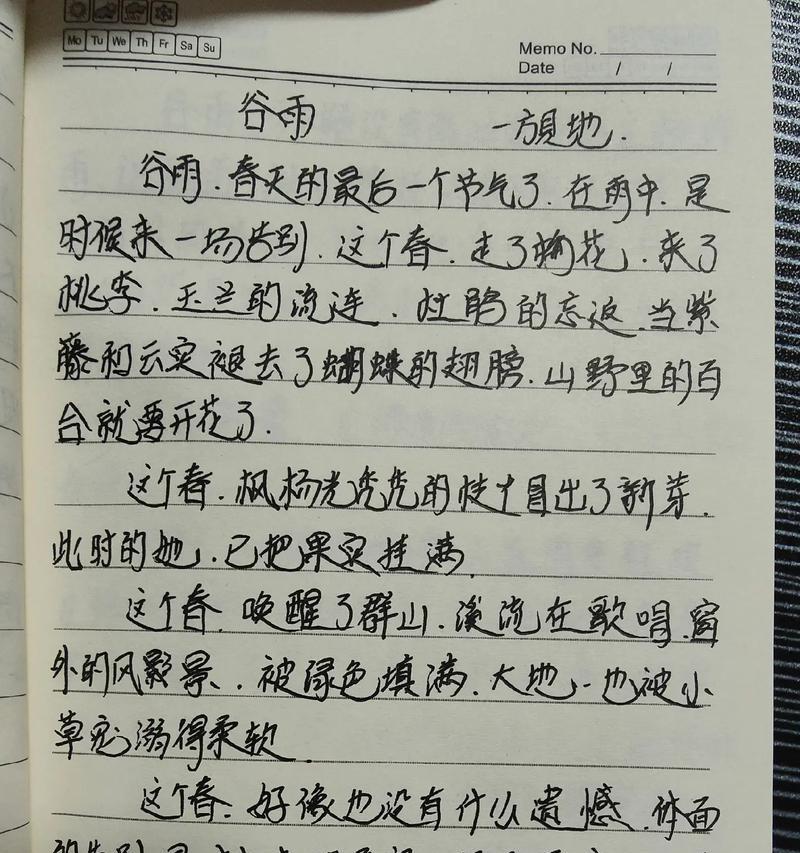 Mo Tu We Th Fr Sa Su
Memo No.
Date / /
谷雨
一方見地.
谷雨.春天的最后一个节气了.在雨中.是
时候来一场告别.这个春.走了梅花.来了
桃李.玉兰的流连.杜鹃的忘返.当紫
藤和云实褪去了蝴蝶的翅膀.山野里的百
合就要开花了.
这个春.枫杨光秃秃的枝丫冒出了新芽.
此时的她.已把果实挂满.
这个春.唤醒了群山.溪流在歌唱.窗
外的风影景.被绿色填满.大地.也被小
草宠溺得柔软.
这个春.好像也没有什么遗憾.体面